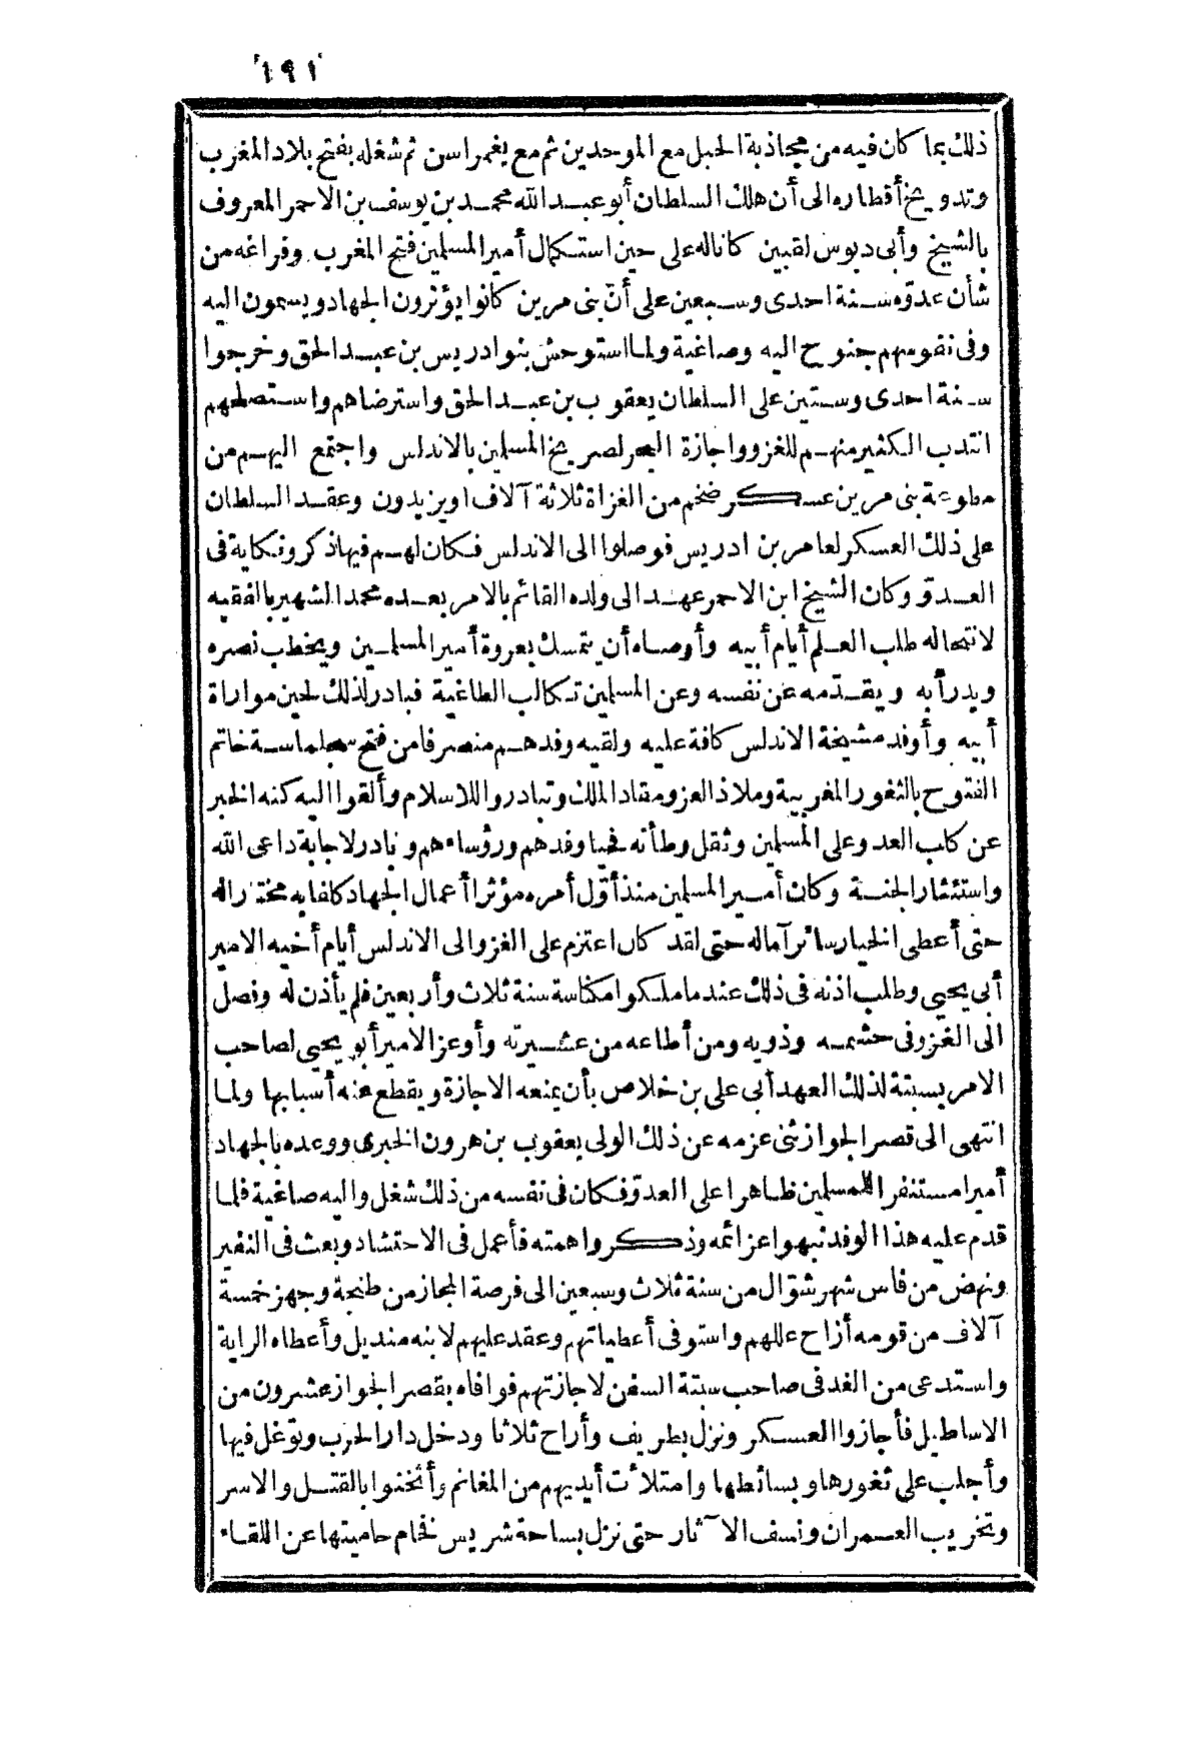 ١٩١
ذلك بما كان فيه من مجاذبة الحبل مع الموحدين ثم مع يغمراسن ثم شغله بفتح بلاد المغرب
وتدويخ أقطاره الى أن هلك السلطان أبو عبد الله محمد بن يوسف بن الاحمر المعروف
بالشيخ وأبى دبوس لقبين كانا له على حين استكمال أمير المسلمين فتح المغرب وفراغه من
شأن عدوّه سنة احدى وسبعين على أنّ بنى مرين كانوا يؤثرون الجهاد ويسمون اليه
وفى نفوسهم جنوح اليه وصاغية ولما استوحش بنو ادريس بن عبد الحق وخرجوا
سنة احدى وستين على السلطان يعقوب بن عبد الحق واسترضاهم واستصلحهم
انتدب الكثير منهم للغزو واجازة البحر لصريخ المسلمين بالاندلس واجتمع اليهم من
مطوعة بنى مرين عسكر ضخم من الغزاة ثلاثة آلاف أو يزيدون وعقد السلطان
على ذلك العسكر لعامر بن ادريس فوصلوا الى الاندلس فكان لهم فيها ذكر ونكاية فى
العدوّ وكان الشيخ ابن الاحمر عهد الى ولده القائم بالامر بعده محمد الشهير بالفقيه
لانتحاله طلب العلم أيام أبيه وأوصاه أن يتمسك بعروة أمير المسلمين ويخطب نصره
ويدرأ به ويقدّمه عن نفسه وعن المسلمين تكالب الطاغية فبادر لذلك لحين مواراة
أبيه وأوفد مشيخة الاندلس كافة عليه ولقيه وفدهم منصرفا من فتح سجلماسة خاتم
الفتوح بالثغور المغربية وملاذ العز ومقاد الملك وتبادروا للاسلام وألقوا اليه كنه الخبر
عن كلب العدو على المسلمين وثقل وطأته فحيا وفدهم ورؤساءهم وبادر لاجابة داعى الله
واستئثار الجنة وكان أمير المسلمين منذ أوّل أمره مؤثرا أعمال الجهاد كلفا به مختارا له
حتى أعطى الخيار سائر آماله حتى لقد كان اعتزم على الغزو الى الاندلس أيام أخيه الامير
أبى يحيى وطلب اذنه فى ذلك عندما ملكوا مكناسة سنة ثلاث وأربعين فلم يأذن له وفصل
الى الغزو فى حشمه وذويه ومن أطاعه من عشيرته وأوعز الامير أبو يحيى لصاحب
الامر بسبتة لذلك العهد أبى على بن خلاص بأن يمنعه الاجازة ويقطع عنه أسبابها ولما
انتهى الى قصر الجواز ثنى عزمه عن ذلك الولى يعقوب بن هرون الخيرى ووعده بالجهاد
أميرا مستنفرا للمسلمين ظاهرا على العدوّ فكان فى نفسه من ذلك شغل واليه صاغية فلما
قدم عليه هذا الوفد نبهوا عزائمه وذكروا همته فأعمل فى الاحتشاد وبعث فى النفير
ونهض من فاس شهر شوّال من سنة ثلاث وسبعين الى فرصة المجاز من طنجة وجهز خمسة
آلاف من قومه أزاح عللهم واستوفى أعطياتهم وعقد عليهم لابنه منديل وأعطاه الراية
واستدعى من الغد فى صاحب سبتة السفن لاجازتهم فوافاه بقصر الجواز عشرون من
الاساطيل فأجازوا العسكر ونزل بطريف وأراح ثلاثا ودخل دار الحرب وتوغل فيها
وأجلب على ثغورها وبسائطها وامتلأت أيديهم من المغانم وأثخنوا بالقتل والاسر
وتخريب العمران ونسف الآثار حتى نزل بساحة شريس فخام حاميتها عن اللقاء